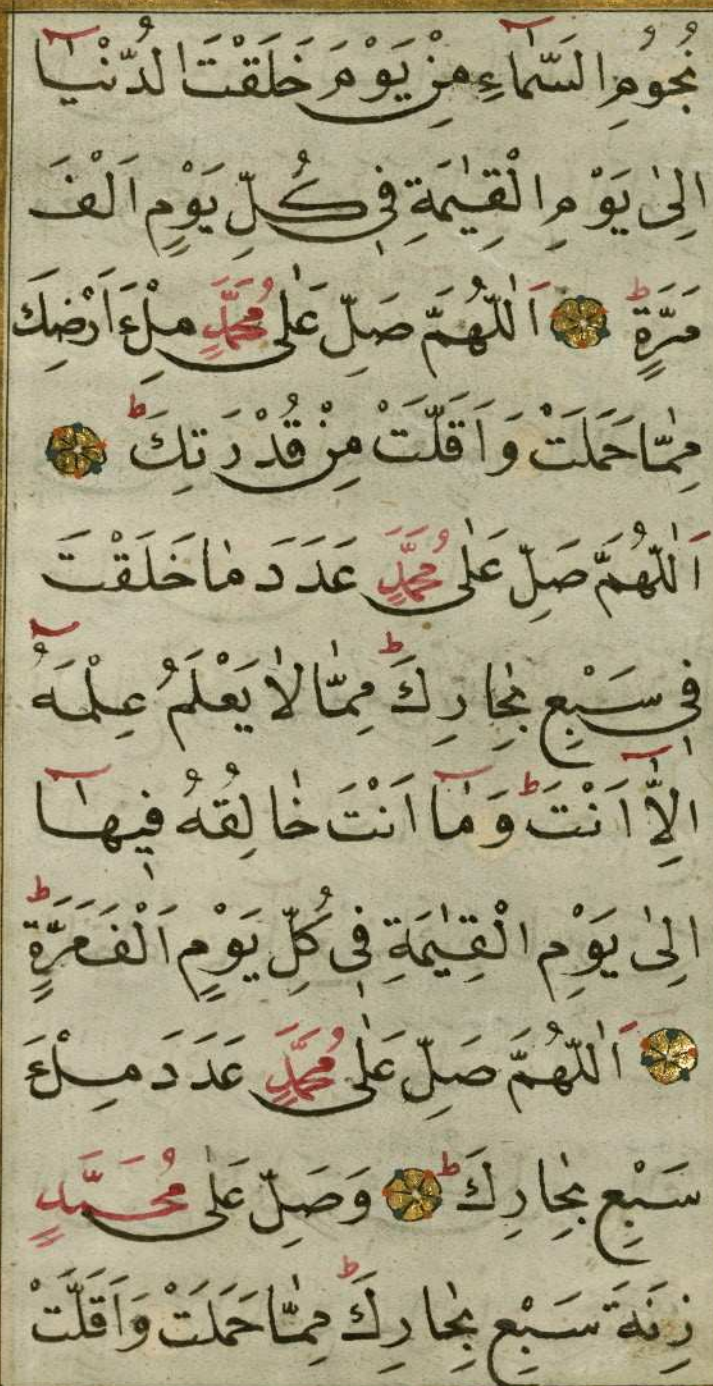 نُجُومِ السَّمَآءِ مِنْ يَوْمَ خَلَقْتَ الدُّنْيَآ
اِلٰى يَوْمِ الْقِيٰمَةِ فِى كُلِّ يَوْمٍ اَلْفَ
مَرَّةٍ ط اَللّٰهُمَّ صَلِّ عَلٰى مُحَمَّدٍ مِلْءَ اَرْضِكَ
مِمَّا حَمَلَتْ وَاَقَلَّتْ مِنْ قُدْرَتِكَ ط
اَللّٰهُمَّ صَلِّ عَلٰى مُحَمَّدٍ عَدَدَ مَا خَلَقْتَ
فِى سَبْعِ بِحَارِكَ ط مِمَّا لَا يَعْلَمُ عِلْمَهُٓ
اِلَّآ اَنْتَ ط وَمَآ اَنْتَ خَالِقُهُ فِيهَآ
اِلٰى يَوْمِ الْقِيٰمَةِ فِى كُلِّ يَوْمٍ اَلْفَ مَرَّةٍ ط
اَللّٰهُمَّ صَلِّ عَلٰى مُحَمَّدٍ عَدَدَ مِلْءَ
سَبْعِ بِحَارِكَ ط وَصَلِّ عَلٰى مُحَمَّدٍ
زِنَةَ سَبْعِ بِحَارِكَ ط مِمَّا حَمَلَتْ وَاَقَلَّتْ